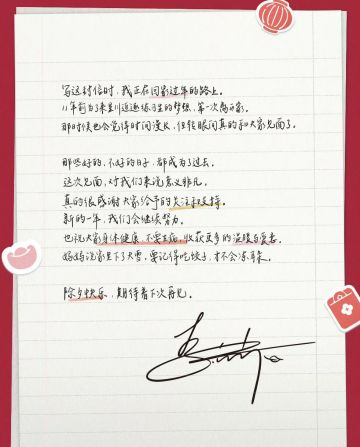 写这封信时，我正在回家过年的路上。
11年前为了来追逐练习生的梦想，第一次离开家。
那时候也会觉得时间漫长，但转眼间真的和大家见面了。
那些好的、不好的日子，都成为了过去。
这次见面，对我们来说意义非凡。
真的很感谢大家给予的关注和支持。
新的一年，我们会继续努力。
也祝大家身体健康，不要生病，收获更多的温暖与爱意。
妈妈说家里下了大雪，要记得吃饺子，才不会冻耳朵。
除夕快乐，期待着下次再见。